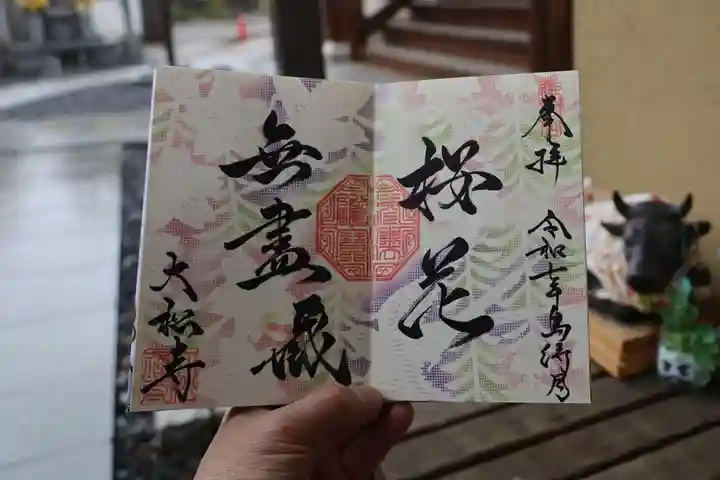 奉拝 令和七年鳥待月
桜花
無盡蔵
大松寺